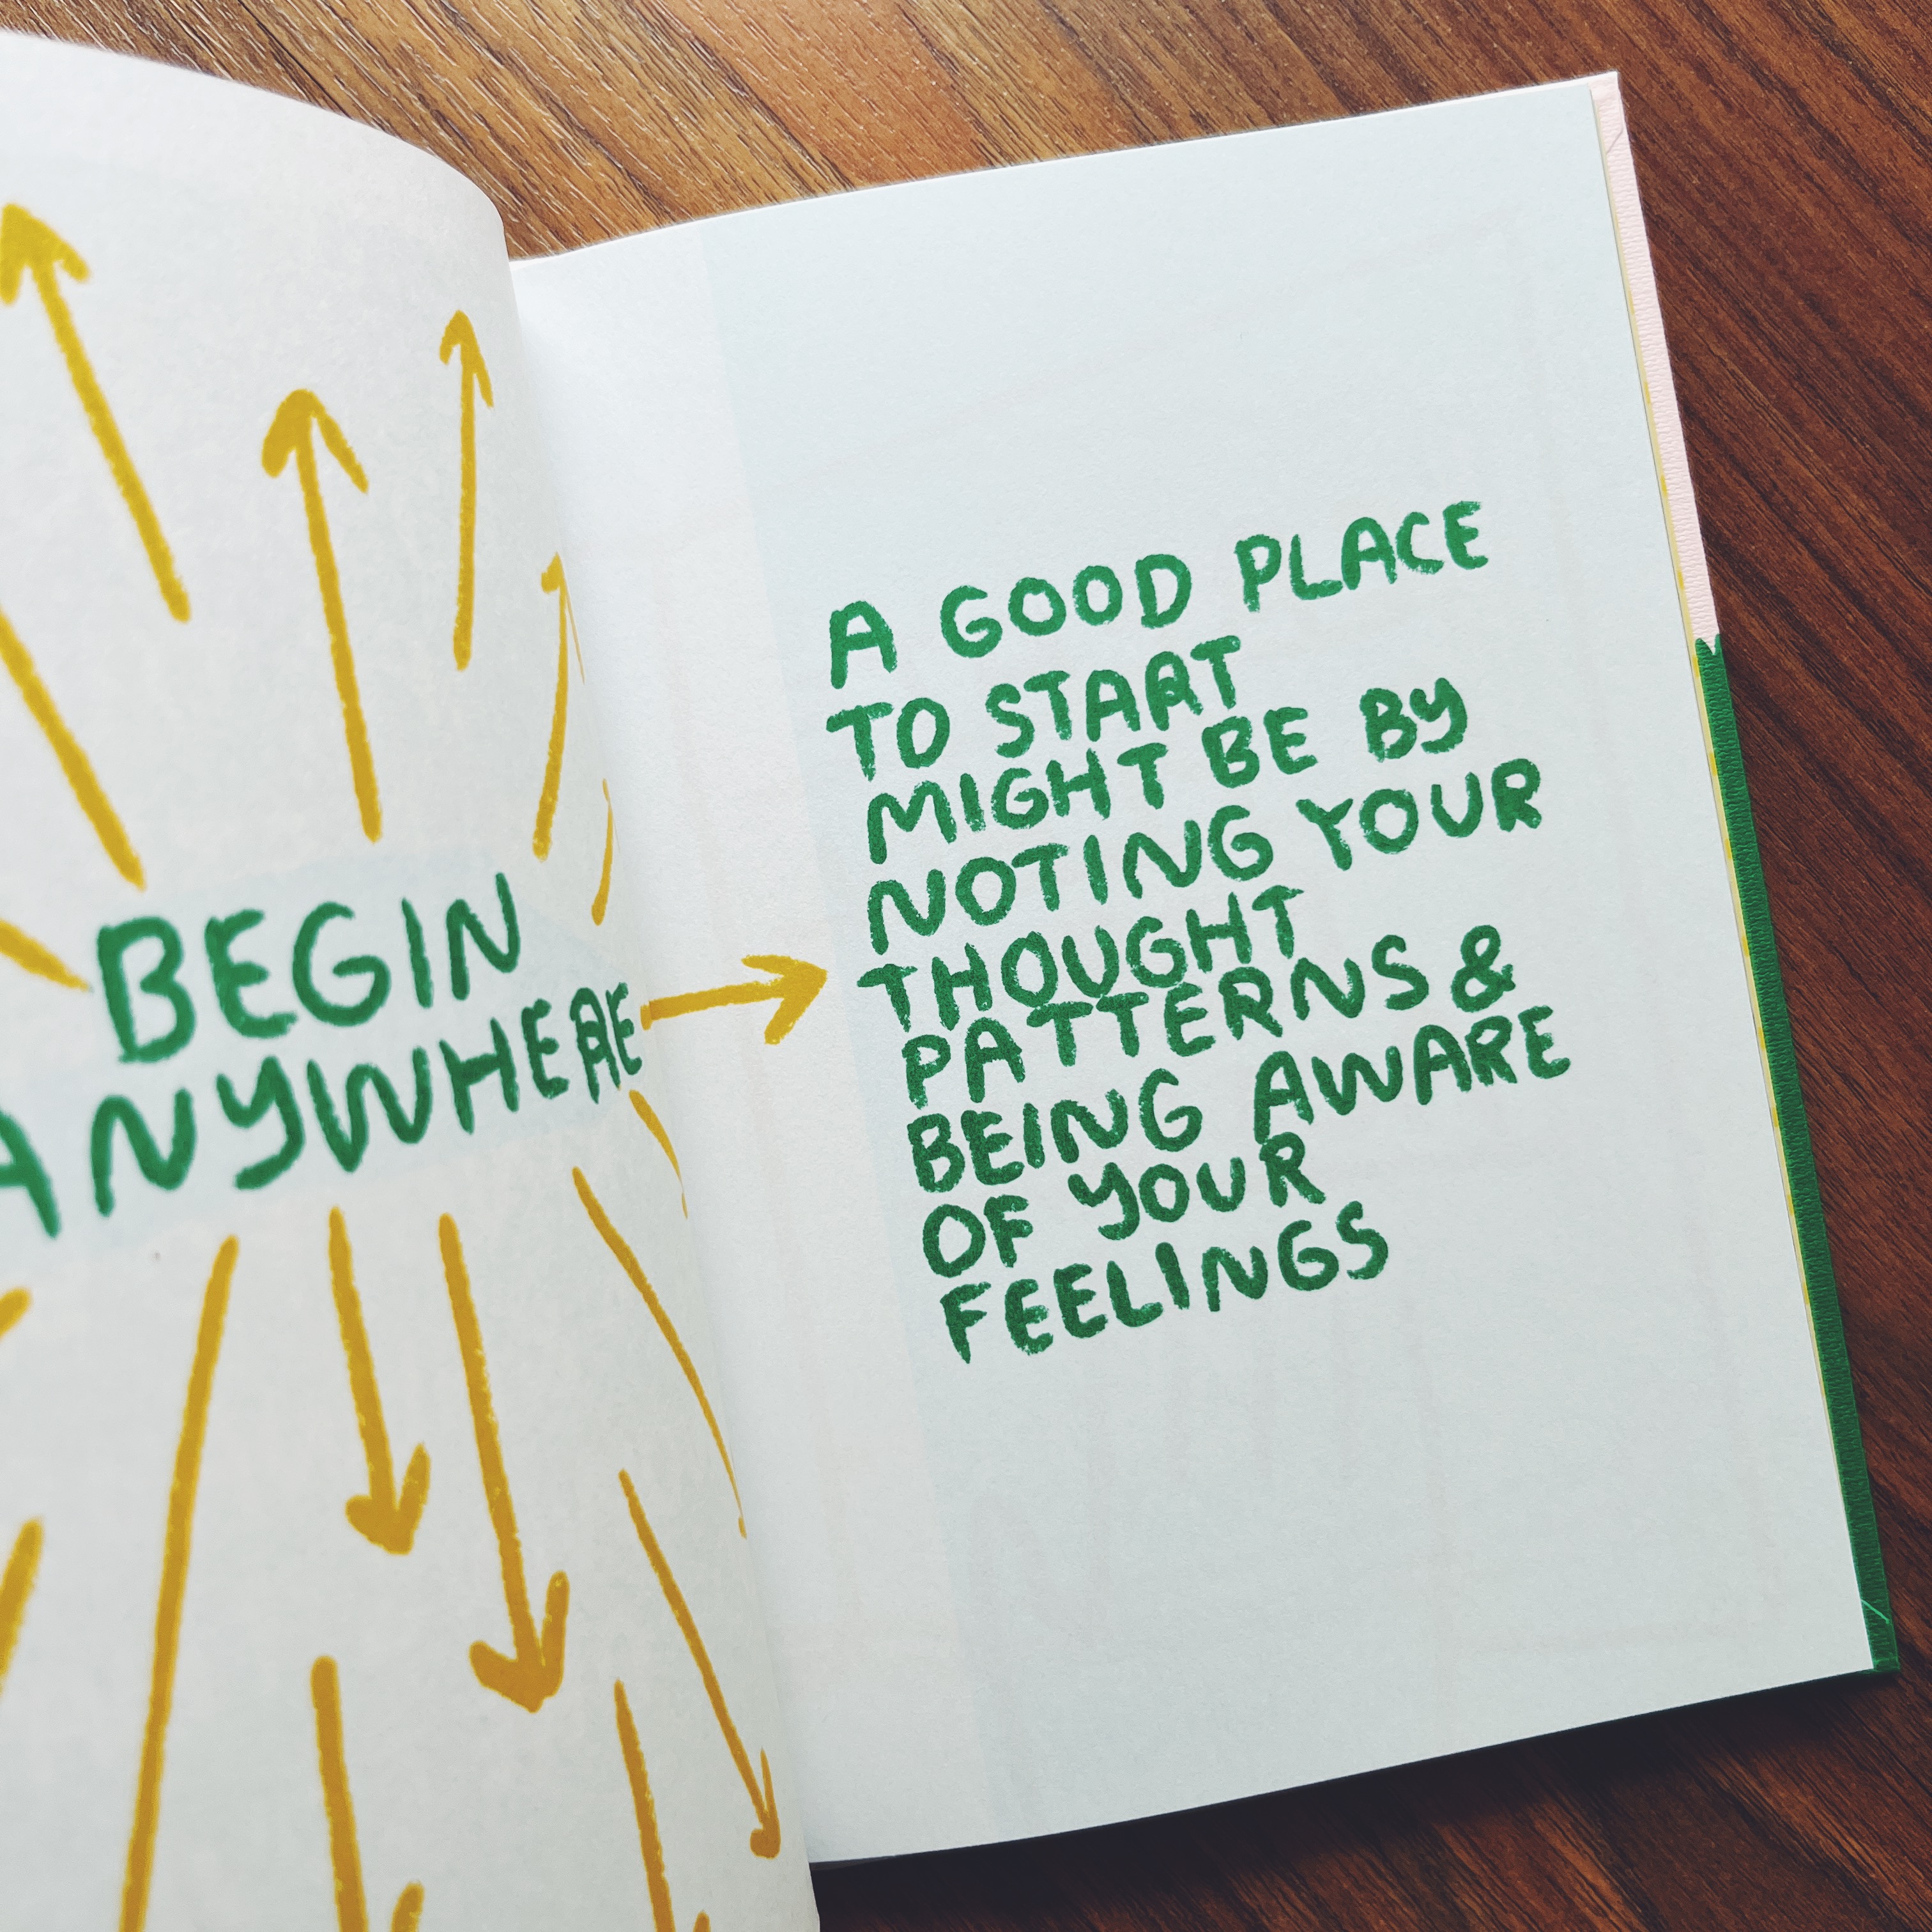 BEGIN
ANYWHERE
A GOOD PLACE
TO START
MIGHT BE BY
NOTING YOUR
THOUGHT
PATTERNS &
BEING AWARE
OF YOUR
FEELINGS